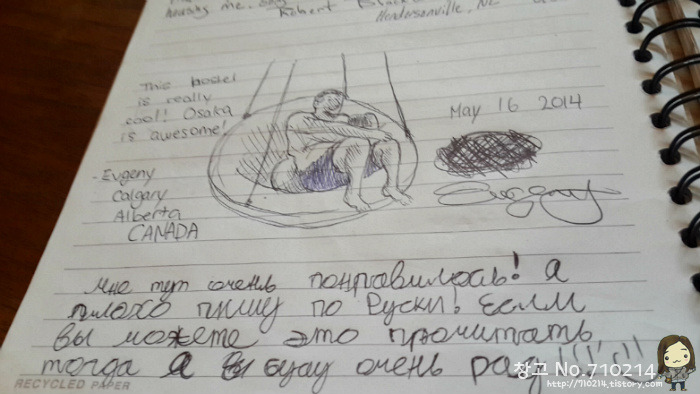 me.
Robert
Hendersonville, NC
This hostel
is really
cool! Osaka
is awesome!
May 16 2014
- Evgeny
Calgary
Alberta
CANADA
Мне тут очень понравилось! Я
плохо пишу по Руски! Если
вы можете это прочитать
тогда я буду очень рад!!!!!
RECYCLED PAPER
창고 No.710214
http://710214.tistory.com